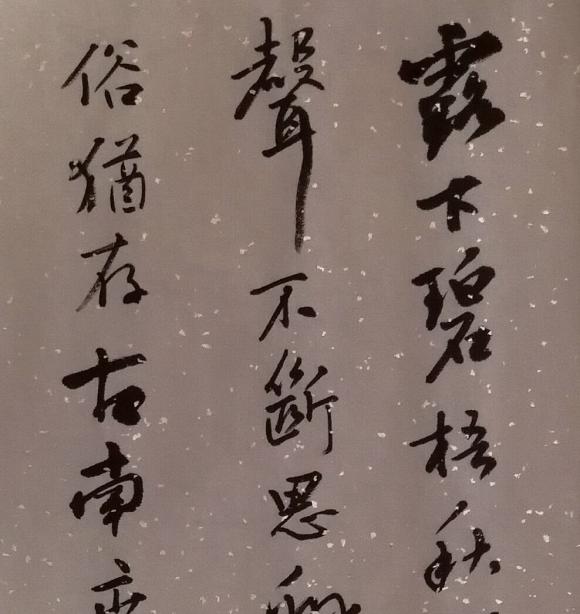 露下碧梧秋
聲不斷思
俗猶存古南